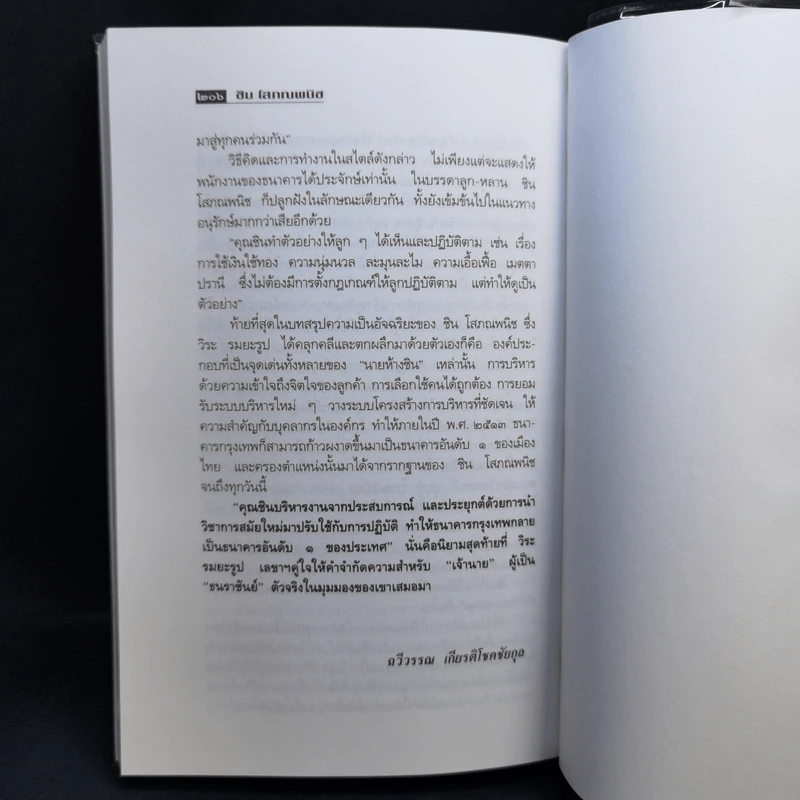 ๒๐๖ ชิน โสภณพนิช
มาสู่ทุกคนร่วมกัน"
วิธีคิดและการทำงานในสไตล์ดังกล่าว ไม่เพียงแต่จะแสดงให้
พนักงานของธนาคารได้ประจักษ์เท่านั้น ในบรรดาลูก-หลาน ชิน
โสภณพนิช ก็ปลูกฝังในลักษณะเดียวกัน ทั้งยังเข้มข้นไปในแนวทาง
อนุรักษ์มากกว่าเสียอีกด้วย
"คุณชินทำตัวอย่างให้ลูก ๆ ได้เห็นและปฏิบัติตาม เช่น เรื่อง
การใช้เงินใช้ทอง ความนุ่มนวล ละมุนละไม ความเอื้อเฟื้อ เมตตา
ปรานี ซึ่งไม่ต้องมีการตั้งกฎเกณฑ์ให้ลูกปฏิบัติตาม แต่ทำให้ดูเป็น
ตัวอย่าง"
ท้ายที่สุดในบทสรุปความเป็นอัจฉริยะของ ชิน โสภณพนิช ซึ่ง
วิระ รมยะรูป ได้คลุกคลีและตกผลึกมาด้วยตัวเองก็คือ องค์ประ-
กอบที่เป็นจุดเด่นทั้งหลายของ "นายห้างชิน" เหล่านั้น การบริหาร
ด้วยความเข้าใจถึงจิตใจของลูกค้า การเลือกใช้คนได้ถูกต้อง การยอม
รับระบบบริหารใหม่ ๆ วางระบบโครงสร้างการบริหารที่ชัดเจน ให้
ความสำคัญกับบุคลากรในองค์กร ทำให้ภายในปี พ.ศ. ๒๕๑๓ ธนา-
คารกรุงเทพก็สามารถก้าวผงาดขึ้นมาเป็นธนาคารอันดับ ๑ ของเมือง
ไทย และครองตำแหน่งนั้นมาได้จากรากฐานของ ชิน โสภณพนิช
จนถึงทุกวันนี้
"คุณชินบริหารงานจากประสบการณ์ และประยุกต์ด้วยการนำ
วิชาการสมัยใหม่มาปรับใช้กับการปฏิบัติ ทำให้ธนาคารกรุงเทพกลาย
เป็นธนาคารอันดับ ๑ ของประเทศ" นั่นคือนิยามสุดท้ายที่ วิระ
รมยะรูป เลขาฯคู่ใจให้คำจำกัดความสำหรับ "เจ้านาย" ผู้เป็น
"ธนราชันย์" ตัวจริงในมุมมองของเขาเสมอมา
ฉวีวรรณ เกียรติโชคชัยกุล